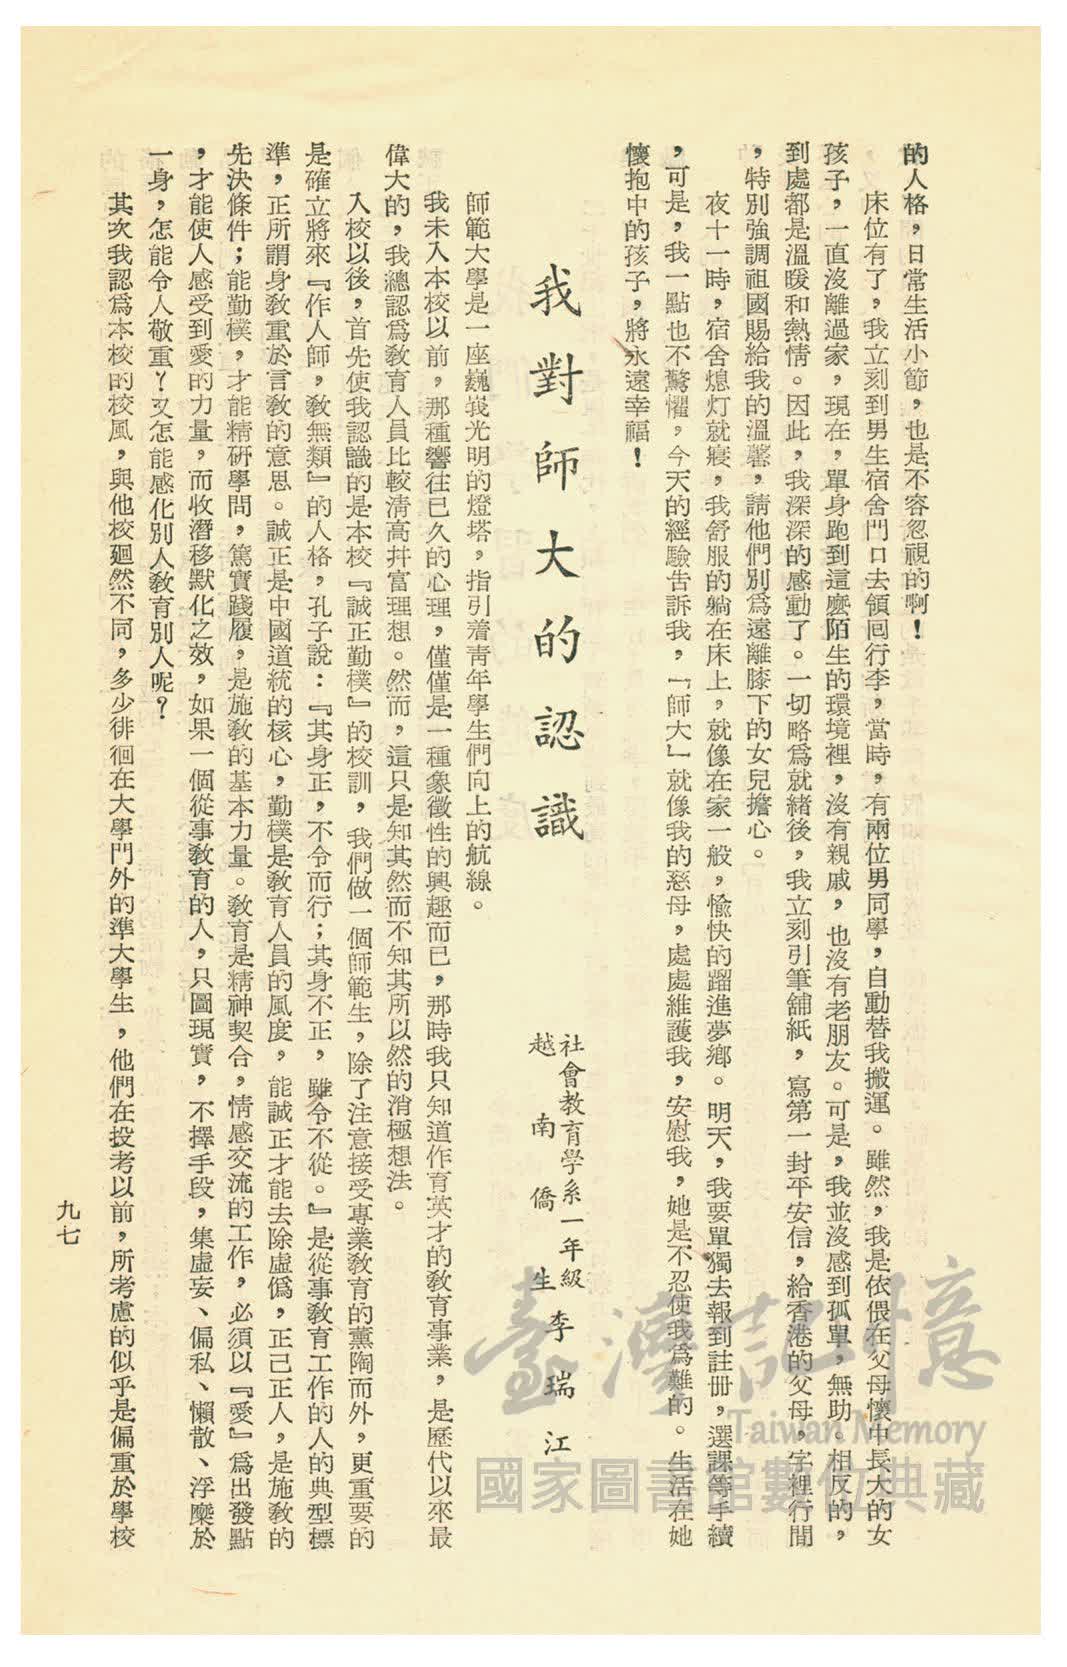 的人格，日常生活小節，也是不容忽視的啊！
床位有了，我立刻到男生宿舍門口去領囘行李，當時，有兩位男同學，自動替我搬運。雖然，我是依偎在父母懷中長大的女
孩子，一直沒離過家，現在，單身跑到這麼陌生的環境裡，沒有親戚，也沒有老朋友。可是，我並沒感到孤單，無助。相反的，
到處都是溫暖和熱情。因此，我深深的感動了。一切略爲就緒後，我立刻引筆舖紙，寫第一封平安信，給香港的父母，字裡行間
，特別強調祖國賜給我的溫馨，請他們別爲遠離膝下的女兒擔心。
夜十一時，宿舍熄灯就寢，我舒服的躺在床上，就像在家一般，愉快的蹓進夢鄉。明天，我要單獨去報到註册，選課等手續
，可是，我一點也不驚懼，今天的經驗告訴我，「師大」就像我的慈母，處處維護我，安慰我，她是不忍使我爲難的。生活在她
懷抱中的孩子，將永遠幸福！
我對師大的認識
社會教育學系一年級
越南僑生
李瑞江
師範大學是一座巍峩光明的燈塔，指引着青年學生們向上的航線。
我未入本校以前，那種響往已久的心理，僅僅是一種象徵性的興趣而已，那時我只知道作育英才的教育事業，是歷代以來最
偉大的，我總認爲教育人員比較淸高幷富理想。然而，這只是知其然而不知其所以然的消極想法。
入校以後，首先使我認識的是本校『誠正勤樸』的校訓，我們做一個師範生，除了注意接受專業教育的薰陶而外，更重要的
是確立將來『作人師，敎無類』的人格，孔子說：『其身正，不令而行；其身不正，雖令不從。』是從事教育工作的人的典型標
準，正所謂身教重於言教的意思。誠正是中國道統的核心，勤樸是教育人員的風度，能誠正才能去除虛僞，正己正人，是施教的
先決條件；能勤樸，才能精研學問，篤實踐履，是施教的基本力量。教育是精神契合，情感交流的工作，必須以『愛』爲出發點
，才能使人感受到愛的力量，而收潛移默化之效，如果一個從事教育的人，只圖現實，不擇手段，集虛妄、偏私、懶散、浮糜於
一身，怎能令人敬重？又怎能感化別人教育別人呢？
其次我認爲本校的校風，與他校廻然不同，多少徘徊在大學門外的準大學生，他們在投考以前，所考慮的似乎是偏重於學校
九七
臺灣記憶
Taiwan Memory
國家圖書館數位典藏